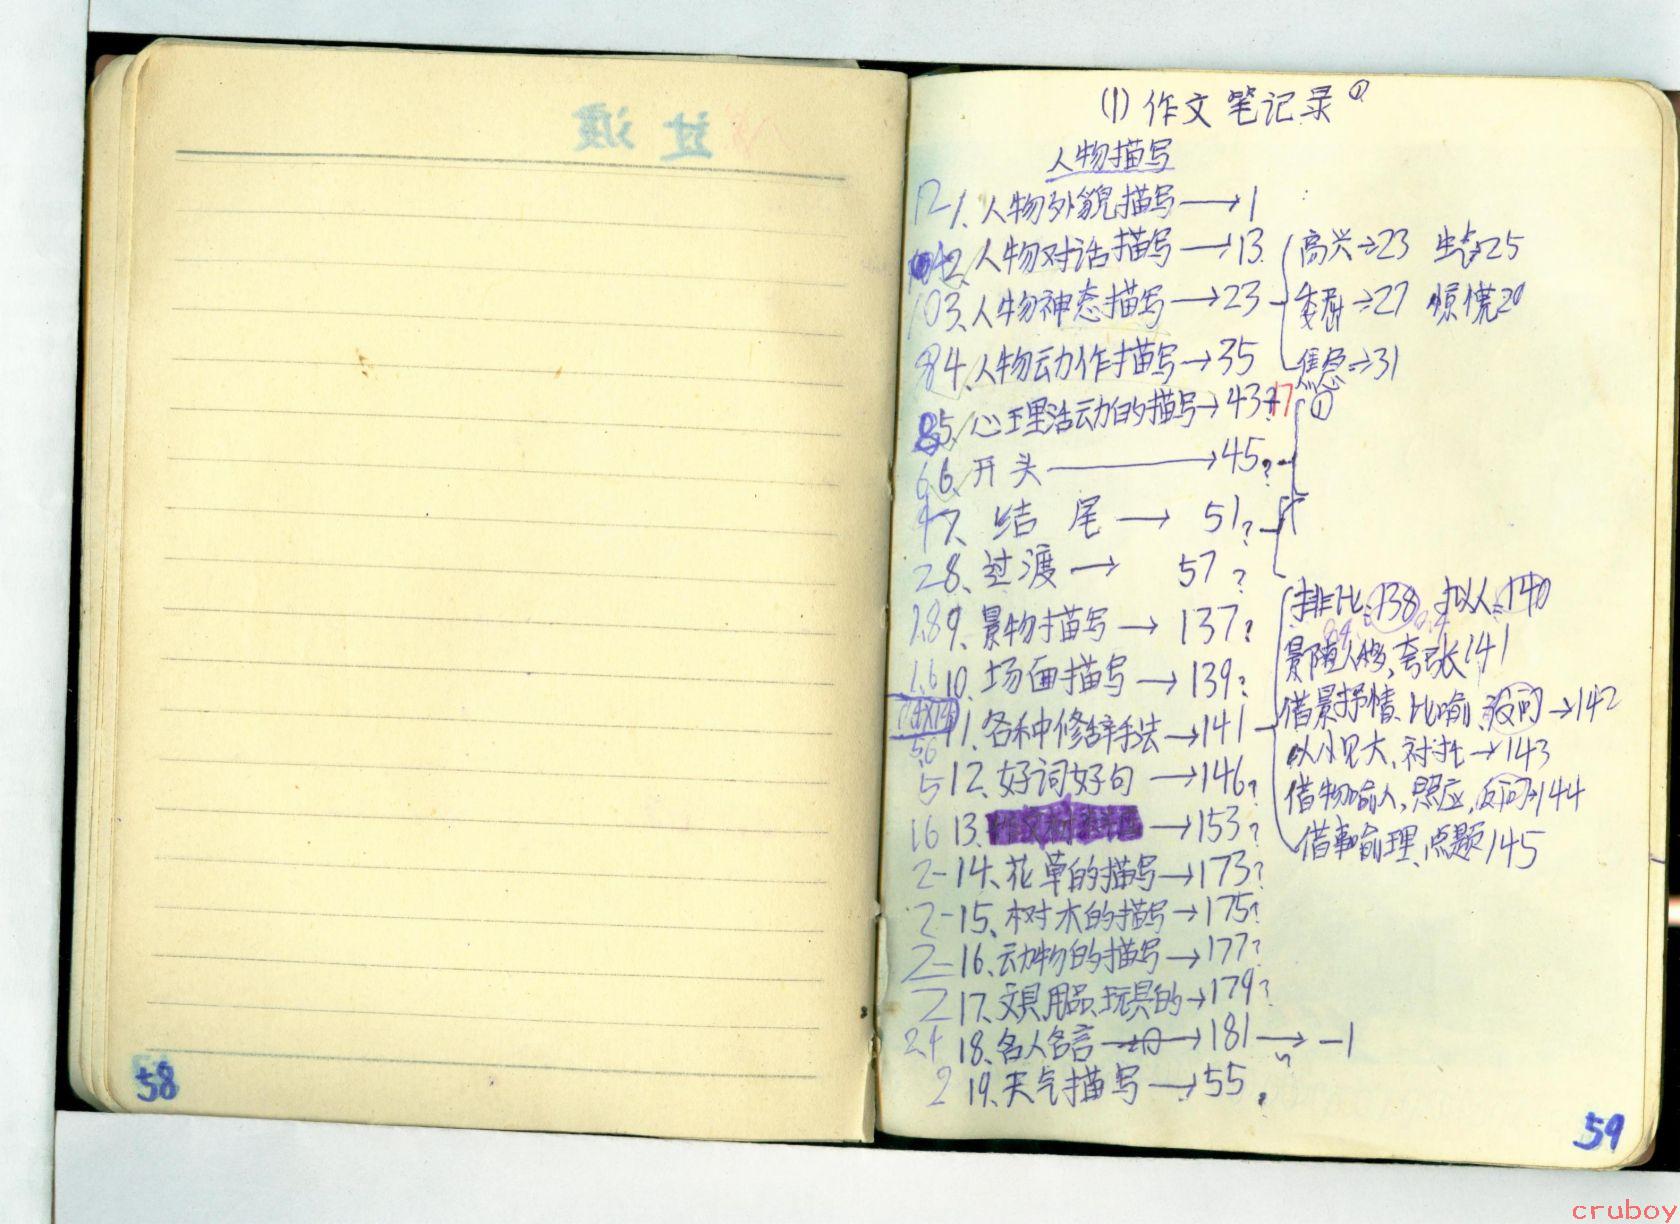 过渡
58
(1)作文笔记录①
人物描写
12 1、人物外貌描写→1
2、人物对话描写→13 高兴→23 生气→25
10 3、人物神态描写→23 委屈→27 惊慌29
8 4、人物动作描写→35 焦急→31
8 5、心理活动的描写→43 17 ①
6 6、开头→45?
4 7、结尾→51?
2 8、过渡→57?
2.8 9、景物描写→137? 排比→138 拟人→140
1.6 10、场面描写→139? 景随人移,夸张141
11、各种修辞手法→141 借景抒情、比喻、设问→142
5.6 以小见大、衬托→143
5 12、好词好句→146? 借物喻人,照应,反问→144
16 13、→153? 借事喻理、点题145
2-14、花草的描写→173?
2-15、树木的描写→175?
2-16、动物的描写→177?
2 17、文具用品玩具的→179?
2.4 18、名人名言→181→-1
2 19、天气描写→55
59
cruboy